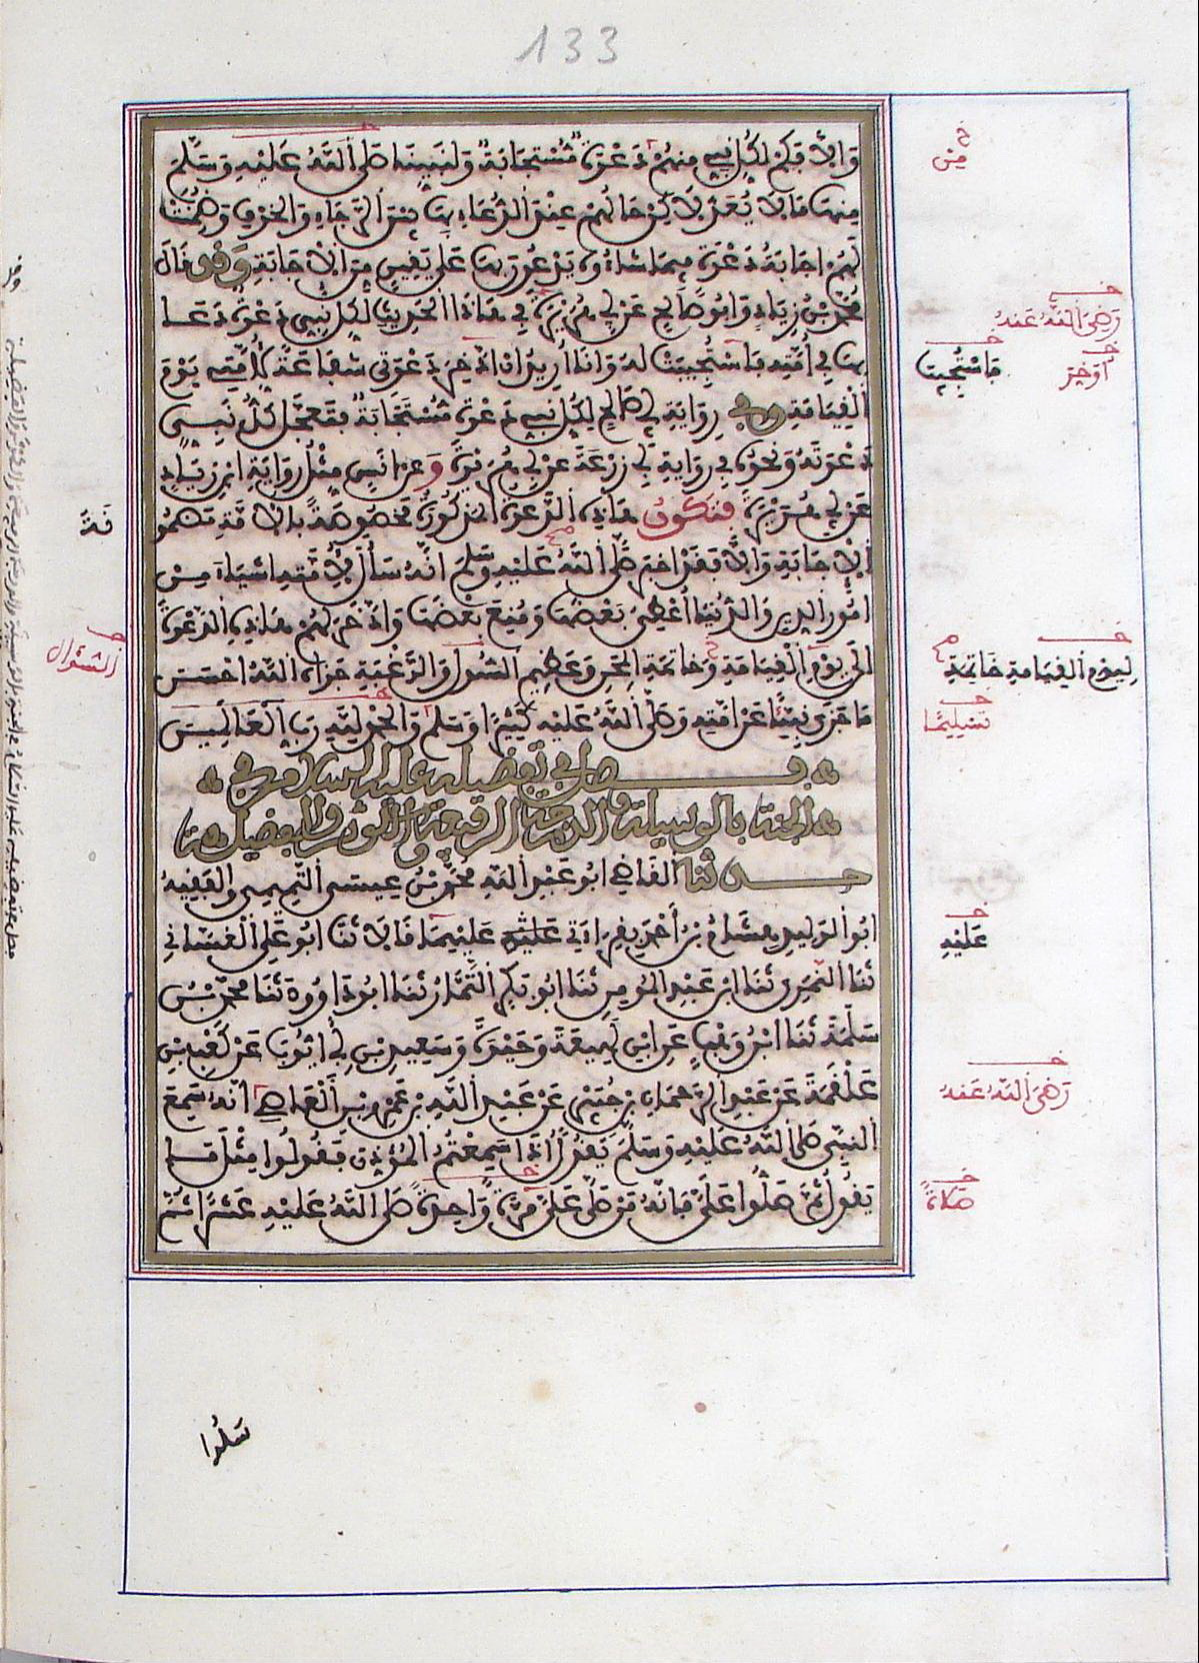 133
وَإِلَّا فَكَمْ لِكُلِّ نَبِيٍّ مِنْهُمْ دَعْوَةٌ مُسْتَجَابَةٌ وَلِنَبِيِّنَا صَلَّى اللَّهُ عَلَيْهِ وَسَلَّمَ
مِنْهَا مَا لَا يُعَدُّ لَكِنْ حَالُهُمْ عِنْدَ الدُّعَاءِ بِهَا بَيْنَ الرَّجَاءِ وَالْخَوْفِ وَضُمِنَتْ
لَهُمْ إِجَابَةُ دَعْوَةٍ فِيمَا شَاءُوهُ يَدْعُونَ بِهَا عَلَى يَقِينٍ مِنَ الْإِجَابَةِ وَقَدْ قَالَ
مُحَمَّدُ بْنُ زِيَادٍ وَأَبُو صَالِحٍ عَنْ أَبِي هُرَيْرَةَ فِي هَذَا الْحَدِيثِ لِكُلِّ نَبِيٍّ دَعْوَةٌ دَعَا
بِهَا فِي أُمَّتِهِ فَاسْتُجِيبَتْ لَهُ وَأَنَا أُرِيدُ أَنْ أَدَّخِرَ دَعْوَتِي شَفَاعَةً لِأُمَّتِي يَوْمَ
الْقِيَامَةِ وَفِي رِوَايَةِ أَبِي صَالِحٍ لِكُلِّ نَبِيٍّ دَعْوَةٌ مُسْتَجَابَةٌ فَتَعَجَّلَ كُلُّ نَبِيٍّ
دَعْوَتَهُ وَنَحْوُهُ فِي رِوَايَةِ أَبِي زُرْعَةَ عَنْ أَبِي هُرَيْرَةَ وَعَنْ أَنَسٍ مِثْلُ رِوَايَةِ ابْنِ زِيَادٍ
عَنْ أَبِي هُرَيْرَةَ فَتَكُونُ هَذِهِ الدَّعْوَةُ الْمَذْكُورَةُ مَخْصُوصَةً بِالْأُمَّةِ مَضْمُو
الْإِجَابَةِ وَإِلَّا فَقَدْ أَخْبَرَ صَلَّى اللَّهُ عَلَيْهِ وَسَلَّمَ أَنَّهُ سَأَلَ لِأُمَّتِهِ أَشْيَاءَ مِنْ
أُمُورِ الدِّينِ وَالدُّنْيَا أُعْطِيَ بَعْضَهَا وَمُنِعَ بَعْضَهَا وَادَّخَرَ لَهُمْ هَذِهِ الدَّعْوَةَ
إِلَى يَوْمِ الْقِيَامَةِ وَخَاتِمَةِ الْمِحَنِ وَعَظِيمِ السُّولِ وَالرَّغْبَةِ جَزَاهُ اللَّهُ أَحْسَنَ
مَا جَزَى نَبِيًّا عَنْ أُمَّتِهِ وَصَلَّى اللَّهُ عَلَيْهِ كَثِيرًا وَسَلَّمَ وَالْحَمْدُ لِلَّهِ رَبِّ الْعَالَمِينَ
فصل في تفضيله عليه السلام في
الجنة بالوسيلة والدرجة الرفيعة والكوثر والفضيلة
حدثنا الْقَاضِي أَبُو عَبْدِ اللَّهِ مُحَمَّدُ بْنُ عِيسَى التَّمِيمِي وَالْفَقِيهُ
أَبُو الْوَلِيدِ هِشَامُ بْنُ أَحْمَدَ بِقِرَاءَتِي عَلَيْهِمَا قَالَا ثَنَا أَبُو عَلِيٍّ الْغَسَّانِي
ثَنَا النَّمَرِي ثَنَا ابْنُ عَبْدِ الْمُومِنِ ثَنَا أَبُو بَكْرٍ التَّمَّارُ ثَنَا أَبُو دَاوُودَ ثَنَا مُحَمَّدُ بْنُ
سَلَمَةَ ثَنَا ابْنُ وَهْبٍ عَنِ ابْنِ لَهِيعَةَ وَحَيْوَةَ وَسَعِيدِ بْنِ أَبِي أَيُّوبَ عَنْ كَعْبِ بْنِ
عَلْقَمَةَ عَنْ عَبْدِ الرَّحْمَانِ بْنِ جُبَيْرٍ عَنْ عَبْدِ اللَّهِ بْنِ عَمْرِو بْنِ الْعَاصِي أَنَّهُ سَمِعَ
النَّبِيَّ صَلَّى اللَّهُ عَلَيْهِ وَسَلَّمَ يَقُولُ إِذَا سَمِعْتُمُ الْمُؤَذِّنَ فَقُولُوا مِثْلَ مَا
يَقُولُ ثُمَّ صَلُّوا عَلَيَّ فَإِنَّهُ مَنْ صَلَّى عَلَيَّ مَرَّةً وَاحِدَةً صَلَّى اللَّهُ عَلَيْهِ عَشْرًا ثُمَّ
سَلُوا
مِنْ
رَضِيَ اللَّهُ عَنْهُ
فَاسْتُجِيبَ
أُوَخِّرَ
نَةَ
السُّؤَالِ
لِيَوْمِ الْقِيَامَةِ خَاتِمَةَ
تَسْلِيمًا
عَلَيْهِ
رَضِيَ اللَّهُ عَنْهُ
صَلَاةً